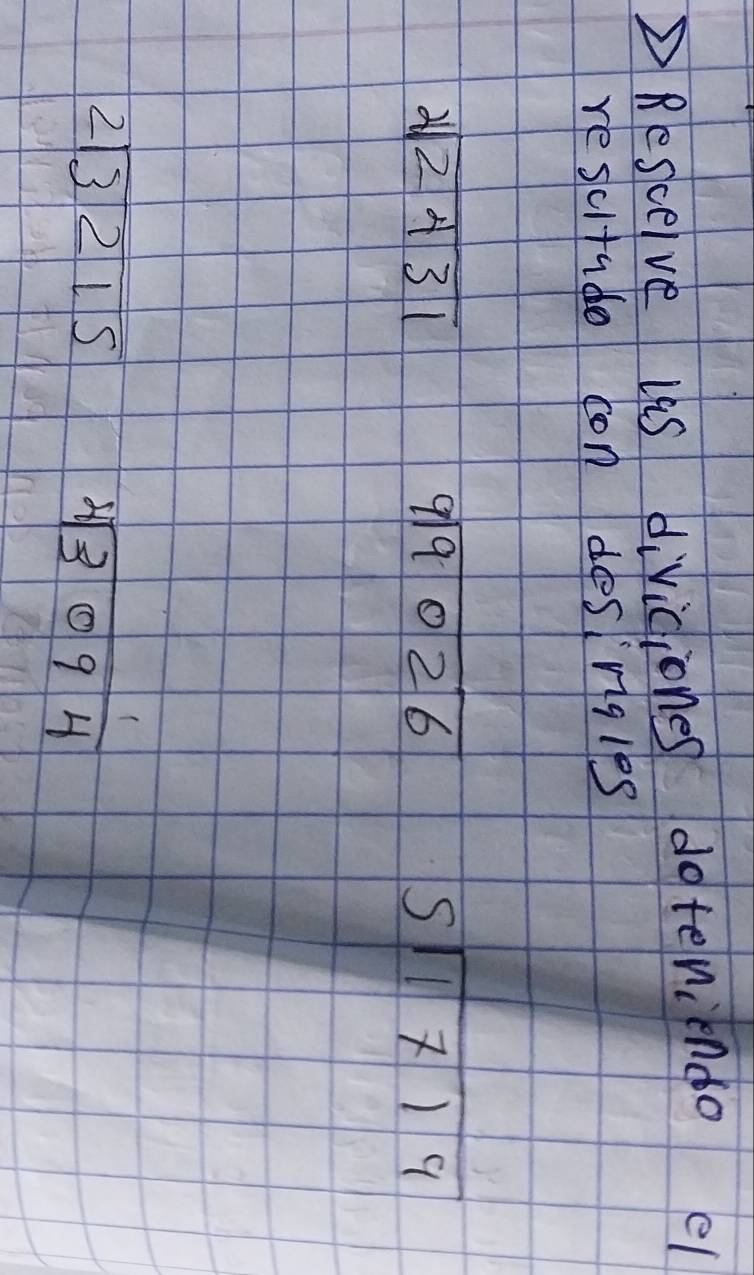 > Rescelve las diviciones doteniendo el
rescltado con desimales
4 2431 9 9026 5 1719
2 3215 4 3094